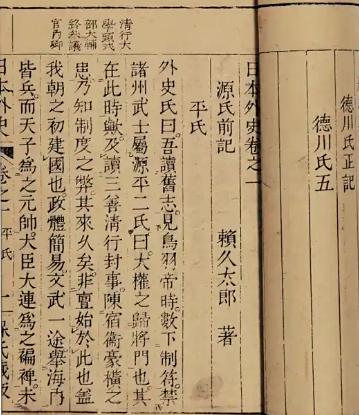 德川氏正記
德川氏五
日本外史卷之
源氏前記 賴久太郎 著
平氏
清行大
學頭式
部大輔
終參議
宮內卿
外史氏曰。吾讀舊志。見鳥羽帝時。數下制符。禁
諸州武士屬源平二氏曰。大權之歸將門也。其
在此時歟。及讀三善清行封事。陳宿衞豪橫之
患。乃知制度之弊。其來久矣。非亶始於此也。蓋
我朝之初建國也。政體簡易。文武一途。舉海內
皆兵。而天子爲之元帥。大臣大連爲之褊裨。未
日本外史 卷之一 平氏 一 氏藏版